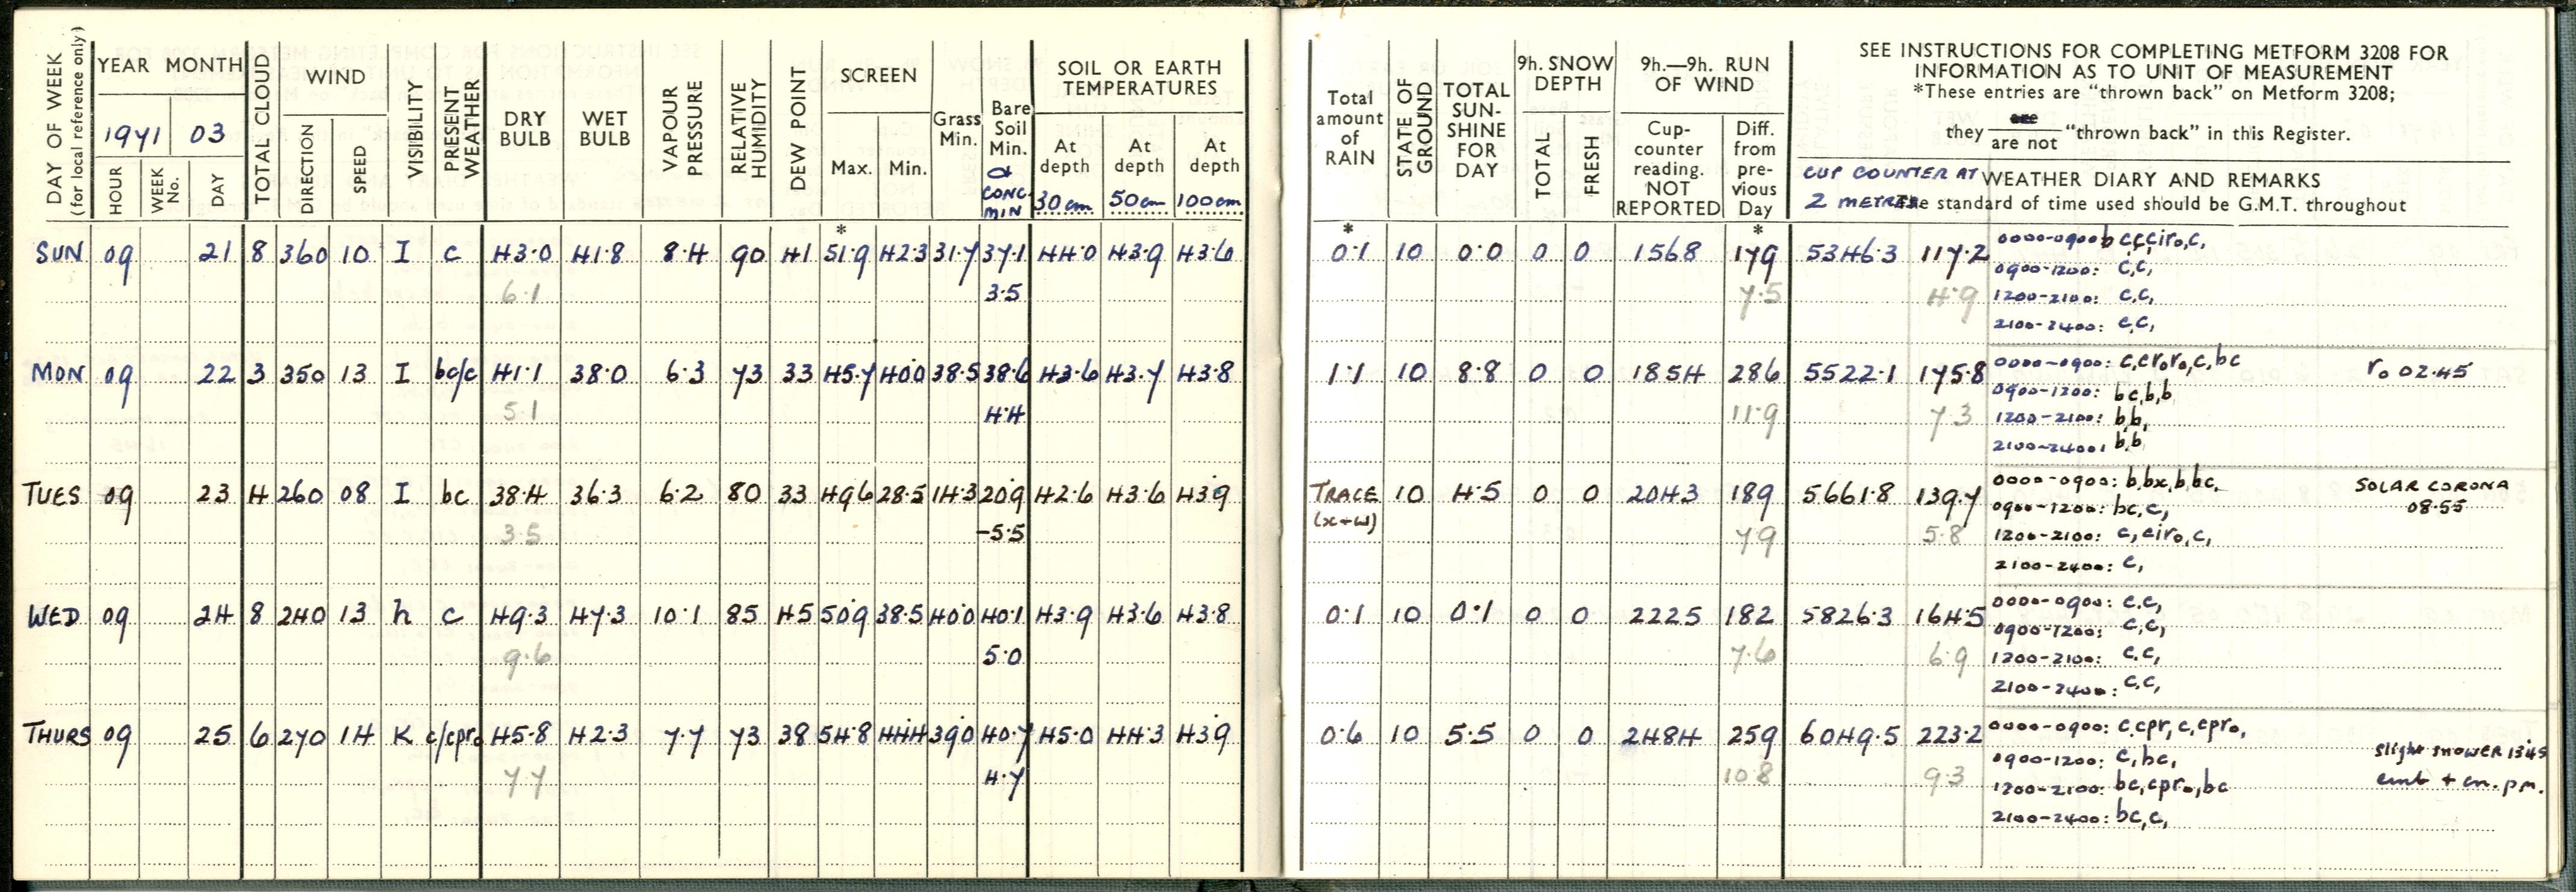 DAY OF WEEK
(for local reference only)
YEAR MONTH
1971 03
HOUR
WEEK No.
DAY
TOTAL CLOUD
WIND
DIRECTION
SPEED
VISIBILITY
PRESENT WEATHER
DRY BULB
WET BULB
VAPOUR PRESSURE
RELATIVE HUMIDITY
DEW POINT
SCREEN
Max.
Min.
Grass Min.
Bare Soil Min.
or CONC MIN
SOIL OR EARTH TEMPERATURES
At depth 30 cm
At depth 50 cm
At depth 100 cm
SUN 09 21 8 360 10 I c 43.0 41.8 8.4 90 41 51.9 42.3 31.7 37.1 44.0 43.9 43.6
6.1 3.5
MON 09 22 3 350 13 I bc/c 41.1 38.0 6.3 73 33 45.7 40.0 38.5 38.6 43.6 43.7 43.8
5.1 4.4
TUES 09 23 4 260 08 I bc 38.4 36.3 6.2 80 33 49.6 28.5 14.3 20.9 42.6 43.6 43.9
3.5 -5.5
WED 09 24 8 240 13 h c 49.3 47.3 10.1 85 45 50.9 38.5 40.0 40.1 43.9 43.6 43.8
9.6 5.0
THURS 09 25 6 270 14 K c/cpro 45.8 42.3 7.7 73 38 54.8 44.4 39.0 40.7 45.0 44.3 43.9
7.7 4.7
Total amount of RAIN
STATE OF GROUND
TOTAL SUN-SHINE FOR DAY
9h. SNOW DEPTH
TOTAL
FRESH
9h.—9h. RUN OF WIND
Cup-counter reading. NOT REPORTED
Diff. from pre-vious Day
SEE INSTRUCTIONS FOR COMPLETING METFORM 3208 FOR
INFORMATION AS TO UNIT OF MEASUREMENT
*These entries are "thrown back" on Metform 3208;
they are / are not "thrown back" in this Register.
CUP COUNTER AT 2 METRES
WEATHER DIARY AND REMARKS
The standard of time used should be G.M.T. throughout
* *
0.1 10 0.0 0 0 1568 179 5346.3 117.2 0000-0900 b c,c,ciro,c,
0900-1200: c,c,
7.5 4.9 1200-2100: c,c,
2100-2400: c,c,
1.1 10 8.8 0 0 1854 286 5522.1 175.8 0000-0900: c,cro,ro,c,bc ro 02.45
0900-1200: bc,b,b
11.9 7.3 1200-2100: b,b,
2100-2400: b,b
TRACE 10 4.5 0 0 2043 189 5661.8 139.7 0000-0900: b,bx,b,bc, SOLAR CORONA
(x+w) 0900-1200: bc,c, 08.55
7.9 5.8 1200-2100: c,ciro,c,
2100-2400: c,
0.1 10 0.1 0 0 2225 182 5826.3 164.5 0000-0900: c,c,
0900-1200: c,c,
7.6 6.9 1200-2100: c,c,
2100-2400: c,c,
0.6 10 5.5 0 0 2484 259 6049.5 223.2 0000-0900: c,cpr,c,cpro,
0900-1200: c,bc, slight shower 1345
10.8 9.3 1200-2100: bc,cpro,bc cumb + cn. pm.
2100-2400: bc,c,